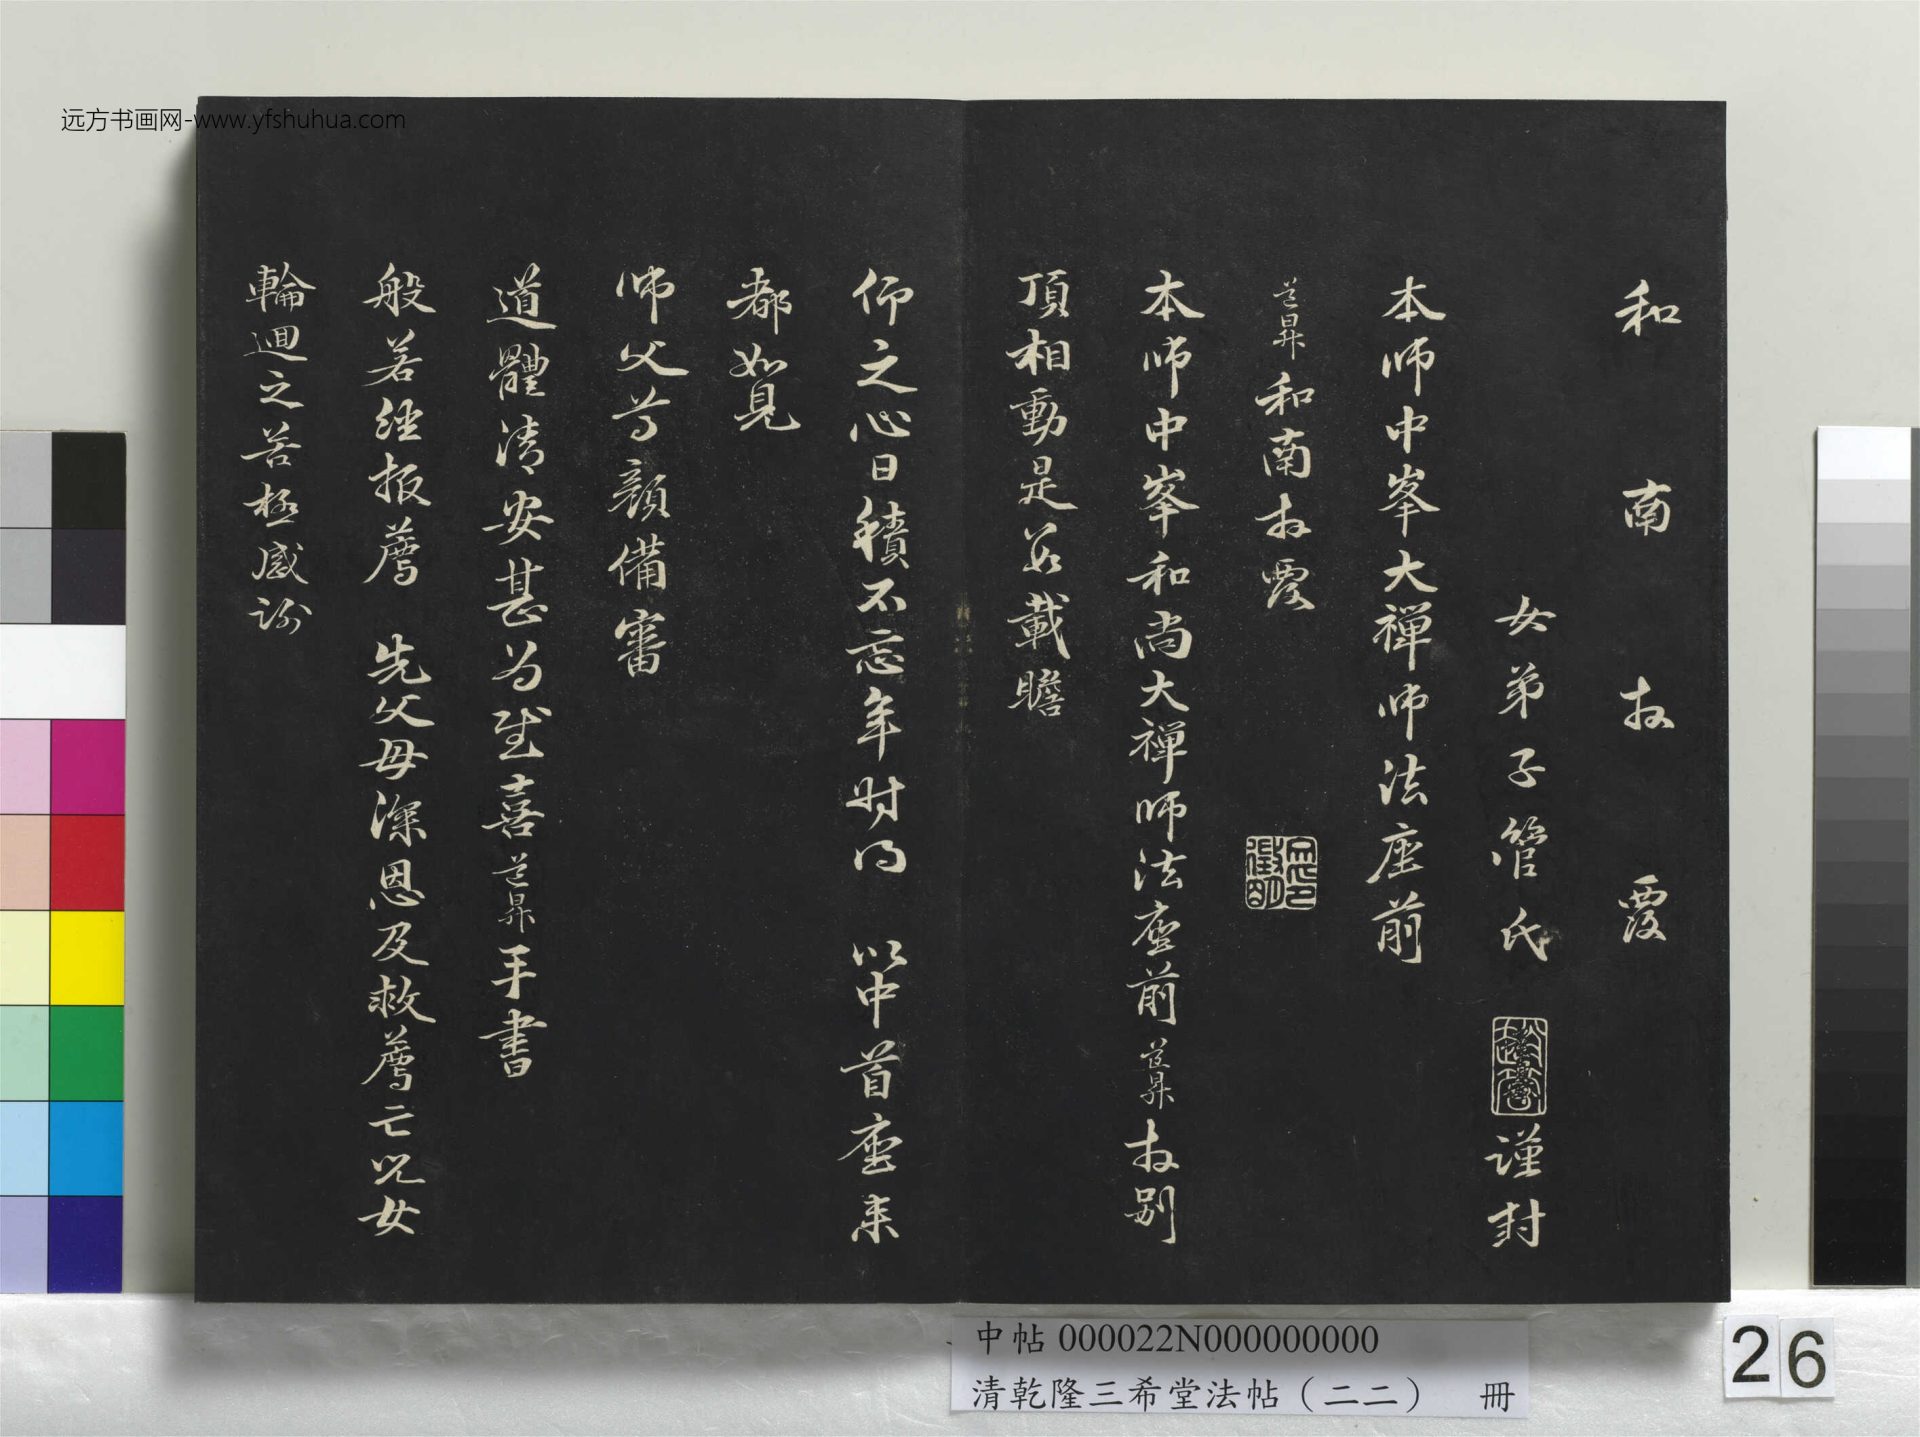 远方书画网-www.yfshuhua.com
和南拜覆
女弟子管氏 謹封
本师中峯大禅师法座前
道昇和南拜覆
本师中峯和尚大禅师法座前道昇拜别
頂相動是數載瞻
仰之心日積不忘年时得 以中首座来
都如見
师父尊顔備審
道體清安甚为慰喜道昇手書
般若经报薦 先父母深恩及救薦亡兒女
輪迴之苦極感謝
中帖 000022N000000000
清乾隆三希堂法帖（二二） 冊
26